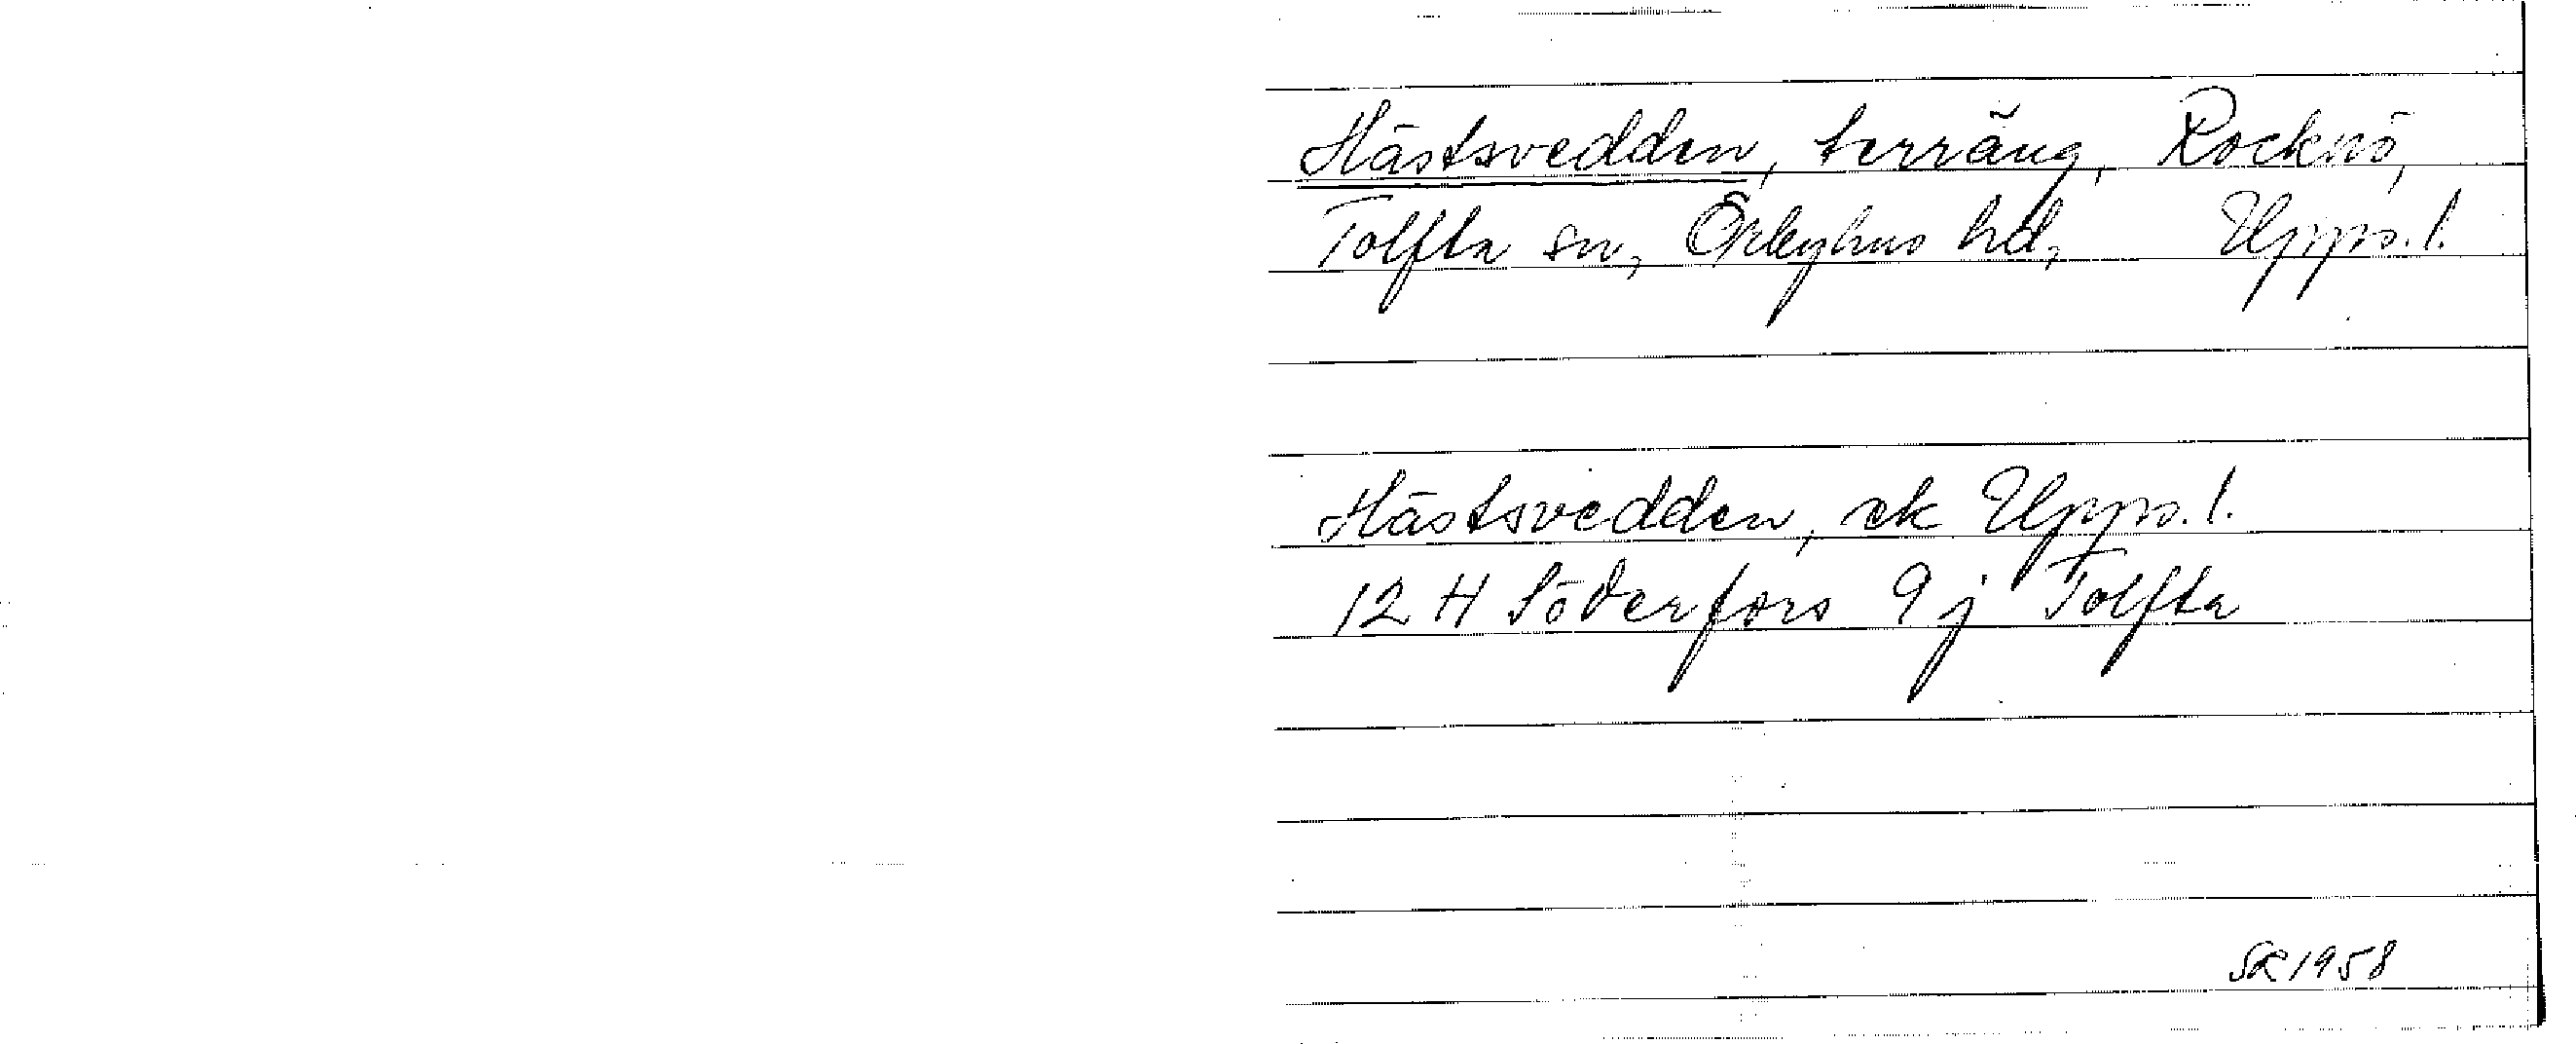 Hästsvedden, terräng, Rocknö,
Tolfta sn, Örbyhus hd, Upps. l.
Hästsvedden, ek Upps. l.
12 H Söderfors 9 j Tolfta
SR 1958